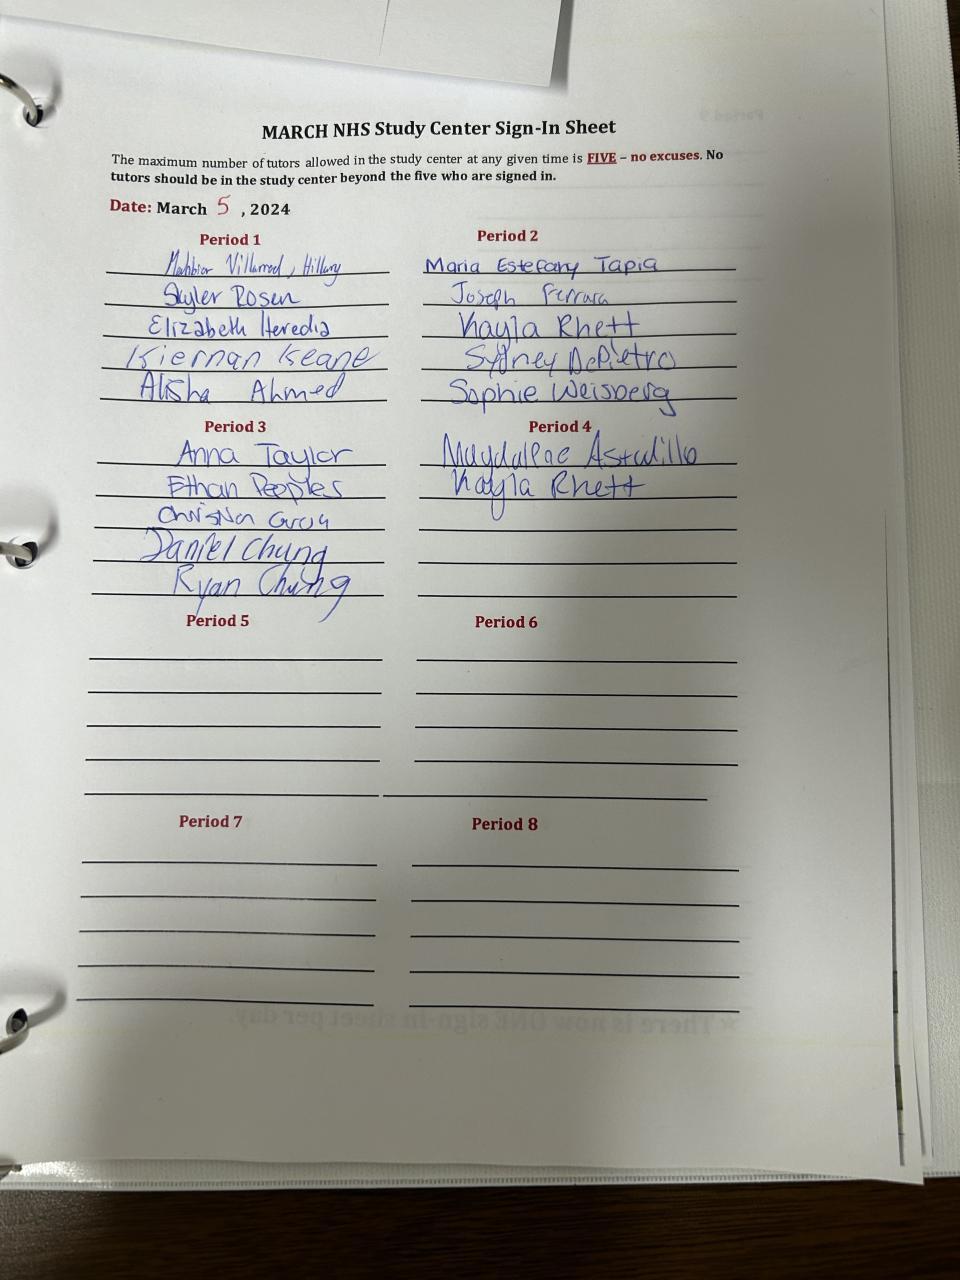 MARCH NHS Study Center Sign-In Sheet
The maximum number of tutors allowed in the study center at any given time is FIVE – no excuses. No
tutors should be in the study center beyond the five who are signed in.
Date: March 5, 2024
Period 1
Hillary
Skyler Rosen
Elizabeth Heredia
Kiernan Keane
Alisha Ahmed
Period 2
Maria Estefany Tapia
Joseph Ferrara
Kayla Rhett
Sydney DePietro
Sophie Weisberg
Period 3
Anna Taylor
Ethan Peoples
Garcia
Daniel Chung
Ryan Chung
Period 4
Kayla Rhett
Period 5
Period 6
Period 7
Period 8
*There is now ONE sign-in sheet per day.